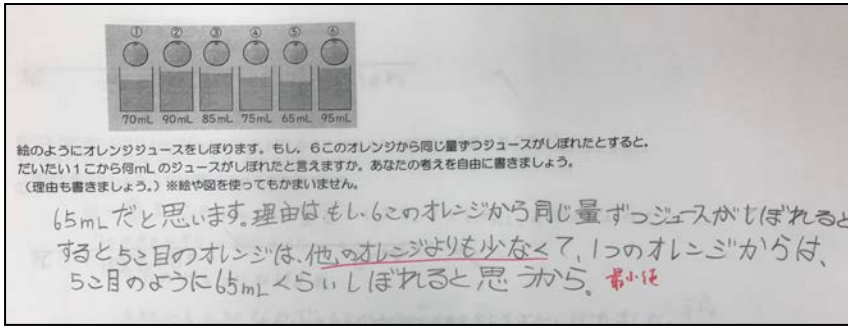 ① ② ③ ④ ⑤ ⑥
70mL 90mL 85mL 75mL 65mL 95mL
絵のようにオレンジジュースをしぼります。もし、6このオレンジから同じ量ずつジュースがしぼれたとすると、
だいたい1こから何mLのジュースがしぼれたと言えますか。あなたの考えを自由に書きましょう。
(理由も書きましょう。)※絵や図を使ってもかまいません。
65mLだと思います。理由は、もし、6このオレンジから同じ量ずつジュースがしぼれると
すると5こ目のオレンジは、他のオレンジよりも少なくて、1つのオレンジからは、
5こ目のように65mLくらいしぼれると思うから。 最小値